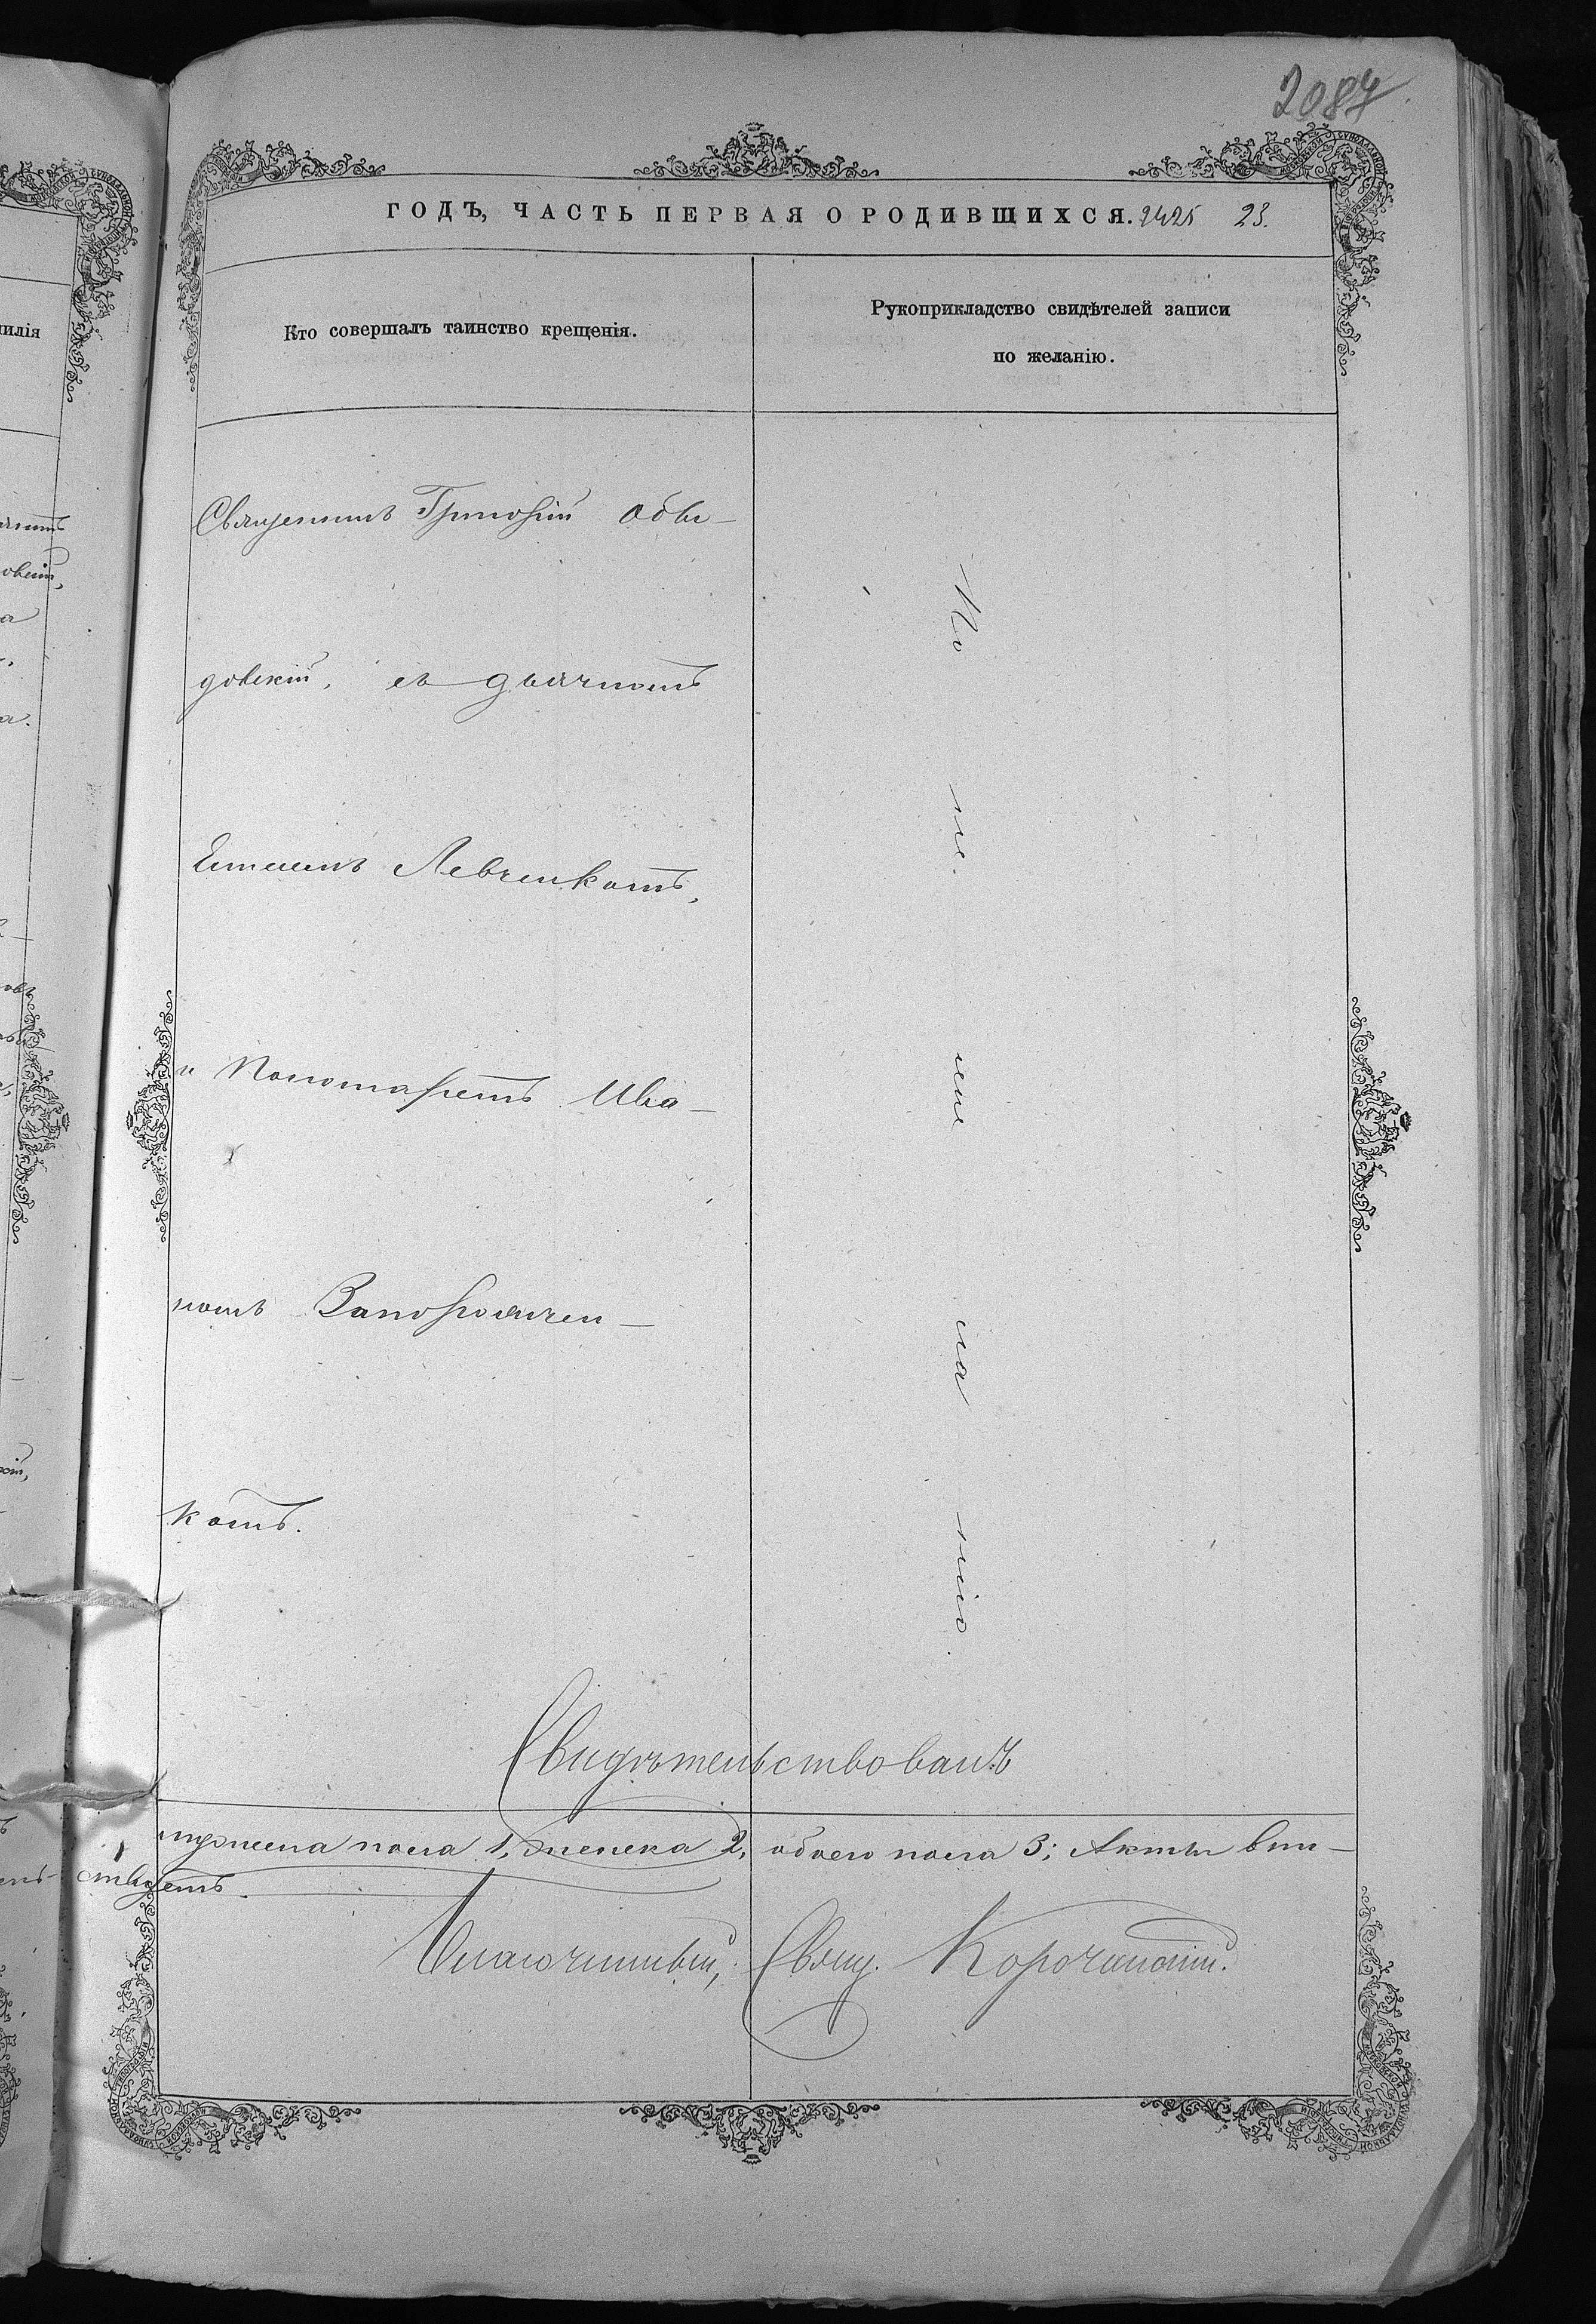 2087
ГОДЪ, ЧАСТЬ ПЕРВАЯ О РОДИВШИХСЯ. 2425 23.
Кто совершалъ таинство крещенія.
Рукоприкладство свидѣтелей записи
по желанію.
Священникъ Григорій Обы-
довскій, съ дьячкомъ
Левченкомъ,
и Пономаремъ Ива-
номъ Запорожчен-
комъ.
По не же ла нію.
Свидѣтельствовалъ
мужеска пола 1, женска 2, обоего пола 3; Акты
Благочинный, Свящ.